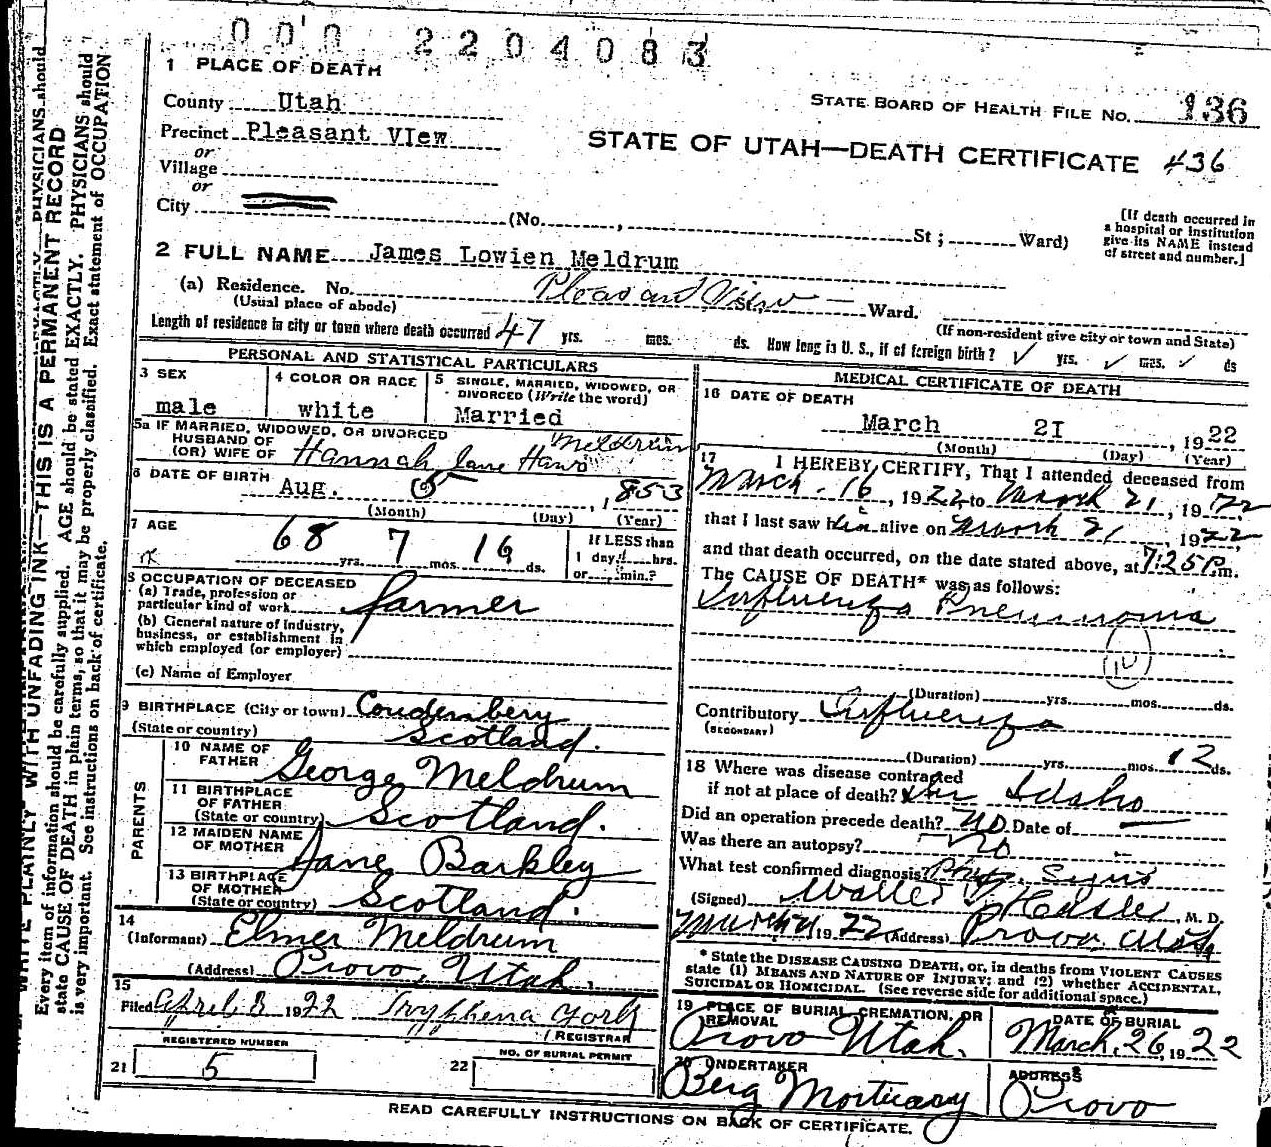 000 2204083
1 PLACE OF DEATH
County Utah
STATE BOARD OF HEALTH FILE NO. 136
Precinct Pleasant VIew
STATE OF UTAH—DEATH CERTIFICATE 436
or
Village
or
City (No. , St ; Ward)
[If death occurred in
a hospital or institution
give its NAME instead
of street and number.]
2 FULL NAME James Lowien Meldrum
(a) Residence. No. Pleasant View St., Ward.
(Usual place of abode)
(If non-resident give city or town and State)
Length of residence in city or town where death occurred 47 yrs. mos. ds. How long in U. S., if of foreign birth? ✓ yrs. ✓ mos. ✓ ds
PERSONAL AND STATISTICAL PARTICULARS
3 SEX
male
4 COLOR OR RACE
white
5 SINGLE, MARRIED, WIDOWED, OR
DIVORCED (Write the word)
Married
5a IF MARRIED, WIDOWED, OR DIVORCED
HUSBAND OF
(OR) WIFE OF Hannah Jane Haws Meldrum
6 DATE OF BIRTH
Aug. 5 , 1853
(Month) (Day) (Year)
7 AGE
68 yrs. 7 mos. 16 ds.
If LESS than
1 day, hrs.
or min.?
8 OCCUPATION OF DECEASED
(a) Trade, profession or
particular kind of work farmer
(b) General nature of Industry,
business, or establishment in
which employed (or employer)
(c) Name of Employer
9 BIRTHPLACE (City or town)
(State or country) Scotland.
PARENTS
10 NAME OF
FATHER George Meldrum
11 BIRTHPLACE
OF FATHER
(State or country) Scotland.
12 MAIDEN NAME
OF MOTHER Jane Barkley
13 BIRTHPLACE
OF MOTHER
(State or country) Scotland.
14
(Informant) Elmer Meldrum
(Address) Provo, Utah.
15
Filed April 3 1922 Tryphena York
REGISTRAR
REGISTERED NUMBER
21 5
NO. OF BURIAL PERMIT
22
MEDICAL CERTIFICATE OF DEATH
16 DATE OF DEATH
March 2I , 1922
(Month) (Day) (Year)
17 I HEREBY CERTIFY, That I attended deceased from
March 16, 1922 to March 21, 1922
that I last saw him alive on March 21 1922
and that death occurred, on the date stated above, at 7:25 P.m.
The CAUSE OF DEATH* was as follows:
Influenza Pneumonia
(Duration) yrs. mos. ds.
Contributory Influenza
(SECONDARY)
(Duration) yrs. mos. 12 ds.
18 Where was disease contracted
if not at place of death? In Idaho
Did an operation precede death? No Date of —
Was there an autopsy? No
What test confirmed diagnosis? Phys. Signs
(Signed) Walter T Hasler, M. D.
March 21 1922 (Address) Provo Utah
* State the DISEASE CAUSING DEATH, or, in deaths from VIOLENT CAUSES
state (1) MEANS AND NATURE OF INJURY; and (2) whether ACCIDENTAL,
SUICIDAL OR HOMICIDAL. (See reverse side for additional space.)
19 PLACE OF BURIAL, CREMATION, OR
REMOVAL
Provo Utah.
DATE OF BURIAL
March. 26, 1922
20 UNDERTAKER
Berg Mortuary
ADDRESS
Provo
READ CAREFULLY INSTRUCTIONS ON BACK OF CERTIFICATE.
WRITE PLAINLY WITH UNFADING INK—THIS IS A PERMANENT RECORD
Every item of information should be carefully supplied. AGE should be stated EXACTLY. PHYSICIANS should
state CAUSE OF DEATH in plain terms, so that it may be properly classified. Exact statement of OCCUPATION
is very important. See instructions on back of certificate.